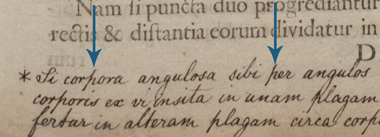 Nam si puncta duo progrediantur
rectis & distantia eorum dividatur in
D
* Si corpora angulosa sibi per angulos
corporis ex vi insita in unam plagam
fertur in alteram plagam circa corp